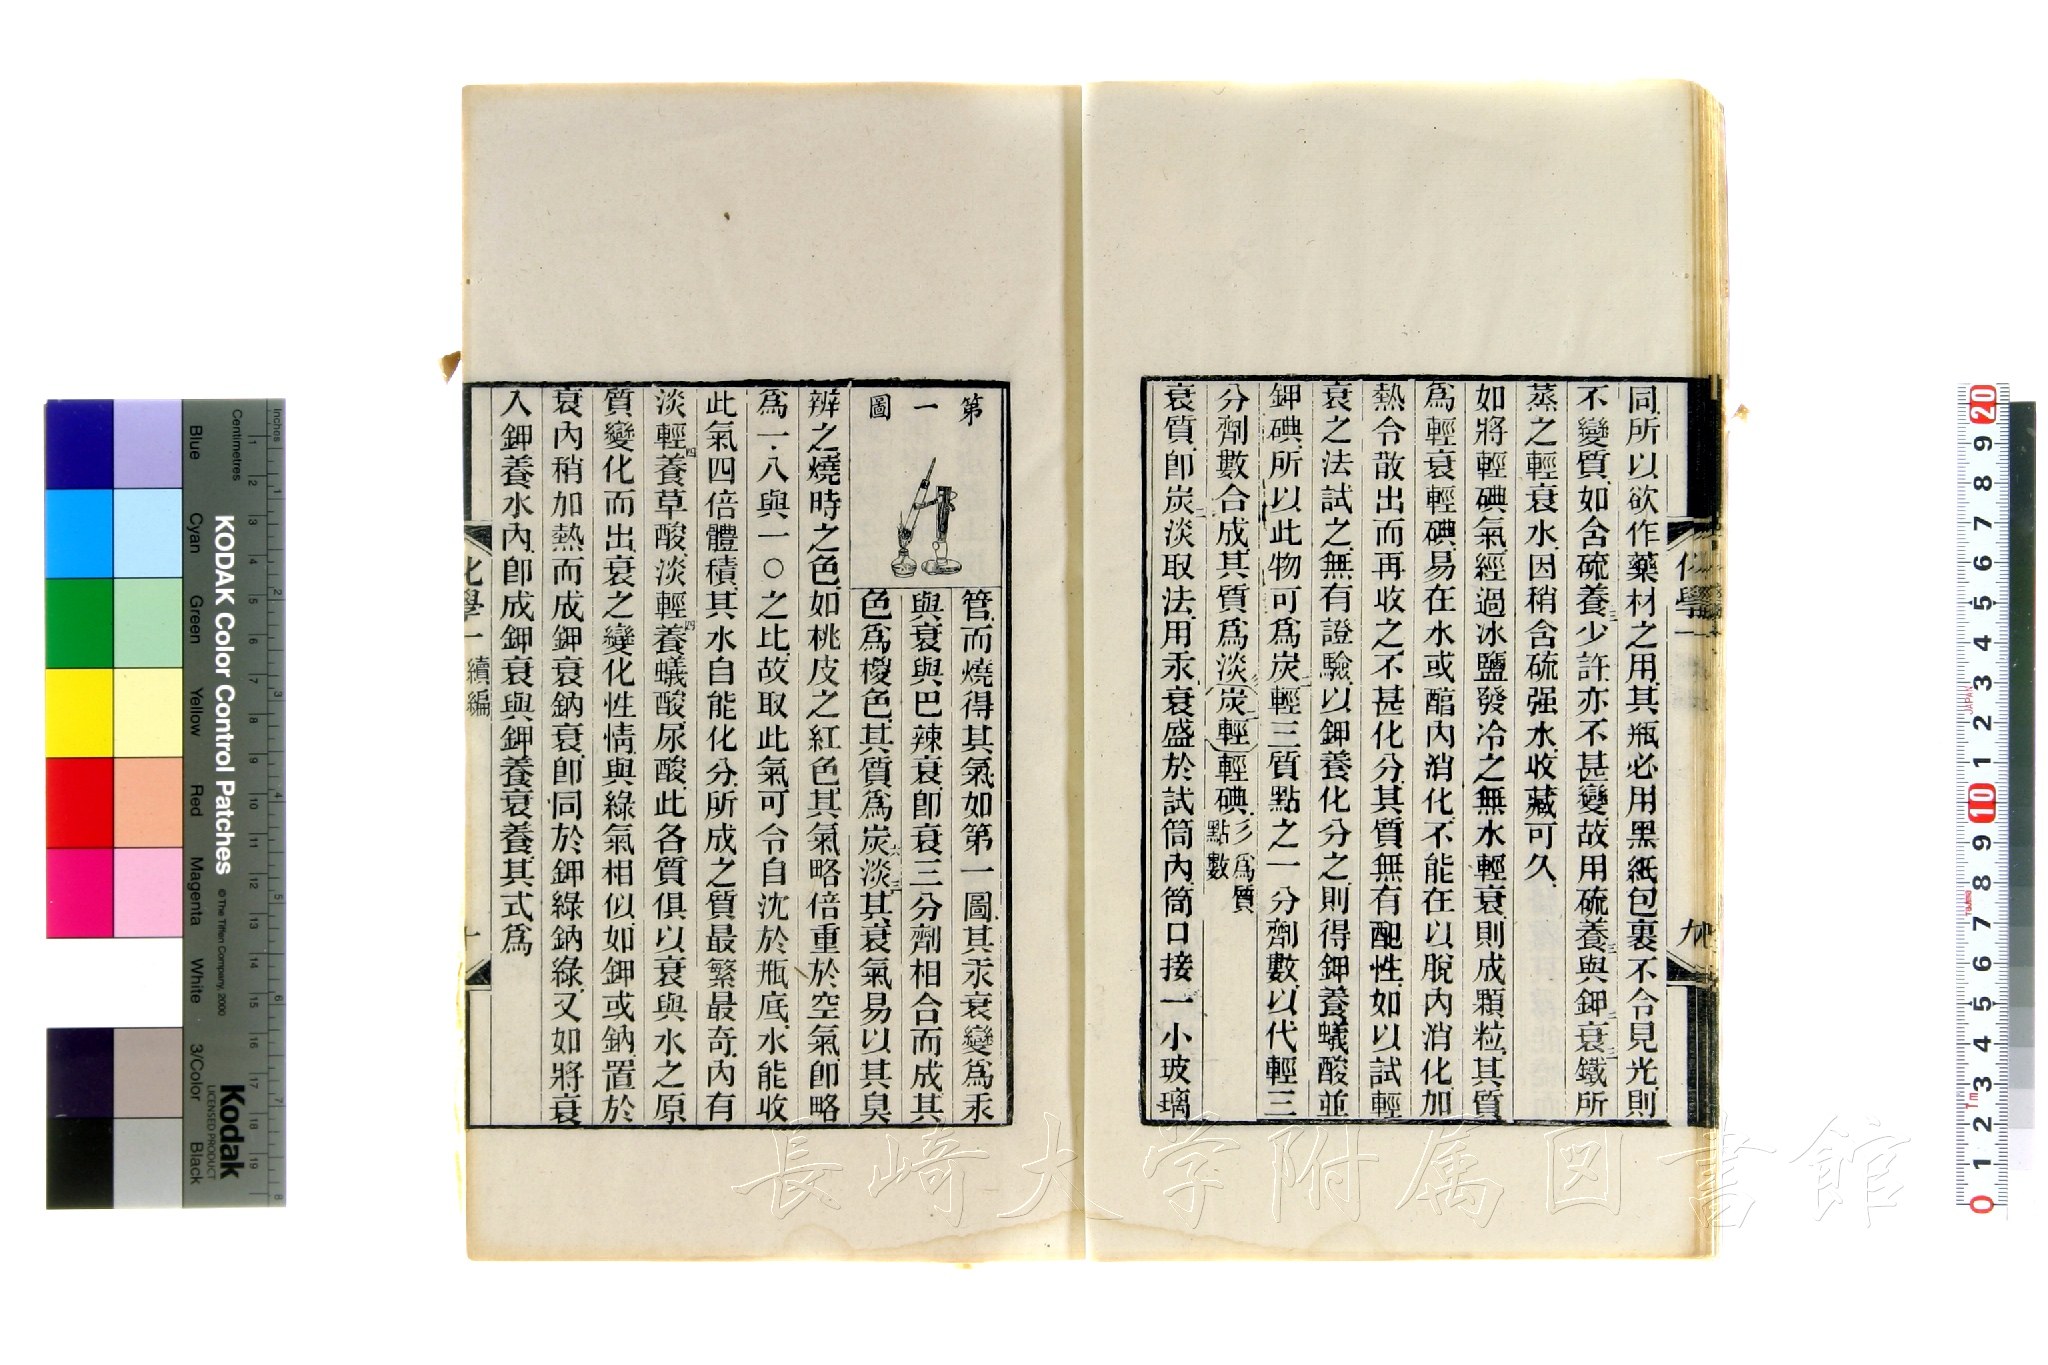 化學一
九
同.所以欲作藥材之用.其瓶必用黑紙包裹不令見光.則
不變質.如含硫養三少許亦不甚變.故用硫養三與鉀衰鐵所
蒸之輕衰水.因稍含硫强水.收藏可久.
如將輕碘氣經過冰鹽發冷之無水輕衰.則成顆粒.其質
爲輕衰輕碘.易在水或醕內消化.不能在以脫內消化.加
熱令散出而再收之不甚化分.其質無有配性.如以試輕
衰之法試之.無有證驗.以鉀養化分之.則得鉀養蟻酸並
鉀碘.所以此物可爲炭二輕三質點之一分劑數.以代輕三
分劑數合成.其質爲淡(炭二輕)輕碘彡爲質點數
衰質.卽炭二淡取法.用汞衰盛於試筒內.筒口接一小玻璃
第一圖
管.而燒得其氣如第一圖.其汞衰變爲汞
與衰與巴辣衰.卽衰三分劑相合而成.其
色爲椶色.其質爲炭六淡三其衰氣易以其臭
辨之.燒時之色如桃皮之紅色.其氣略倍重於空氣.卽略
爲一.八與一〇之比.故取此氣可令自沈於瓶底.水能收
此氣四倍體積.其水自能化分.所成之質最繁最奇.內有
淡輕四養草酸.淡輕四養蟻酸.尿酸.此各質俱以衰與水之原
質變化而出.衰之變化性情與綠氣相似.如鉀或鈉.置於
衰內稍加熱而成鉀衰鈉衰.卽同於鉀綠鈉綠.又如將衰
入鉀養水內.卽成鉀衰與鉀養衰養.其式爲
化學一 續編
十
KODAK Color Control Patches
© The Tiffen Company, 2000
Kodak
LICENSED PRODUCT
Inches
Centimetres
Blue
Cyan
Green
Yellow
Red
Magenta
White
3/Color
Black
長崎大学附属図書館